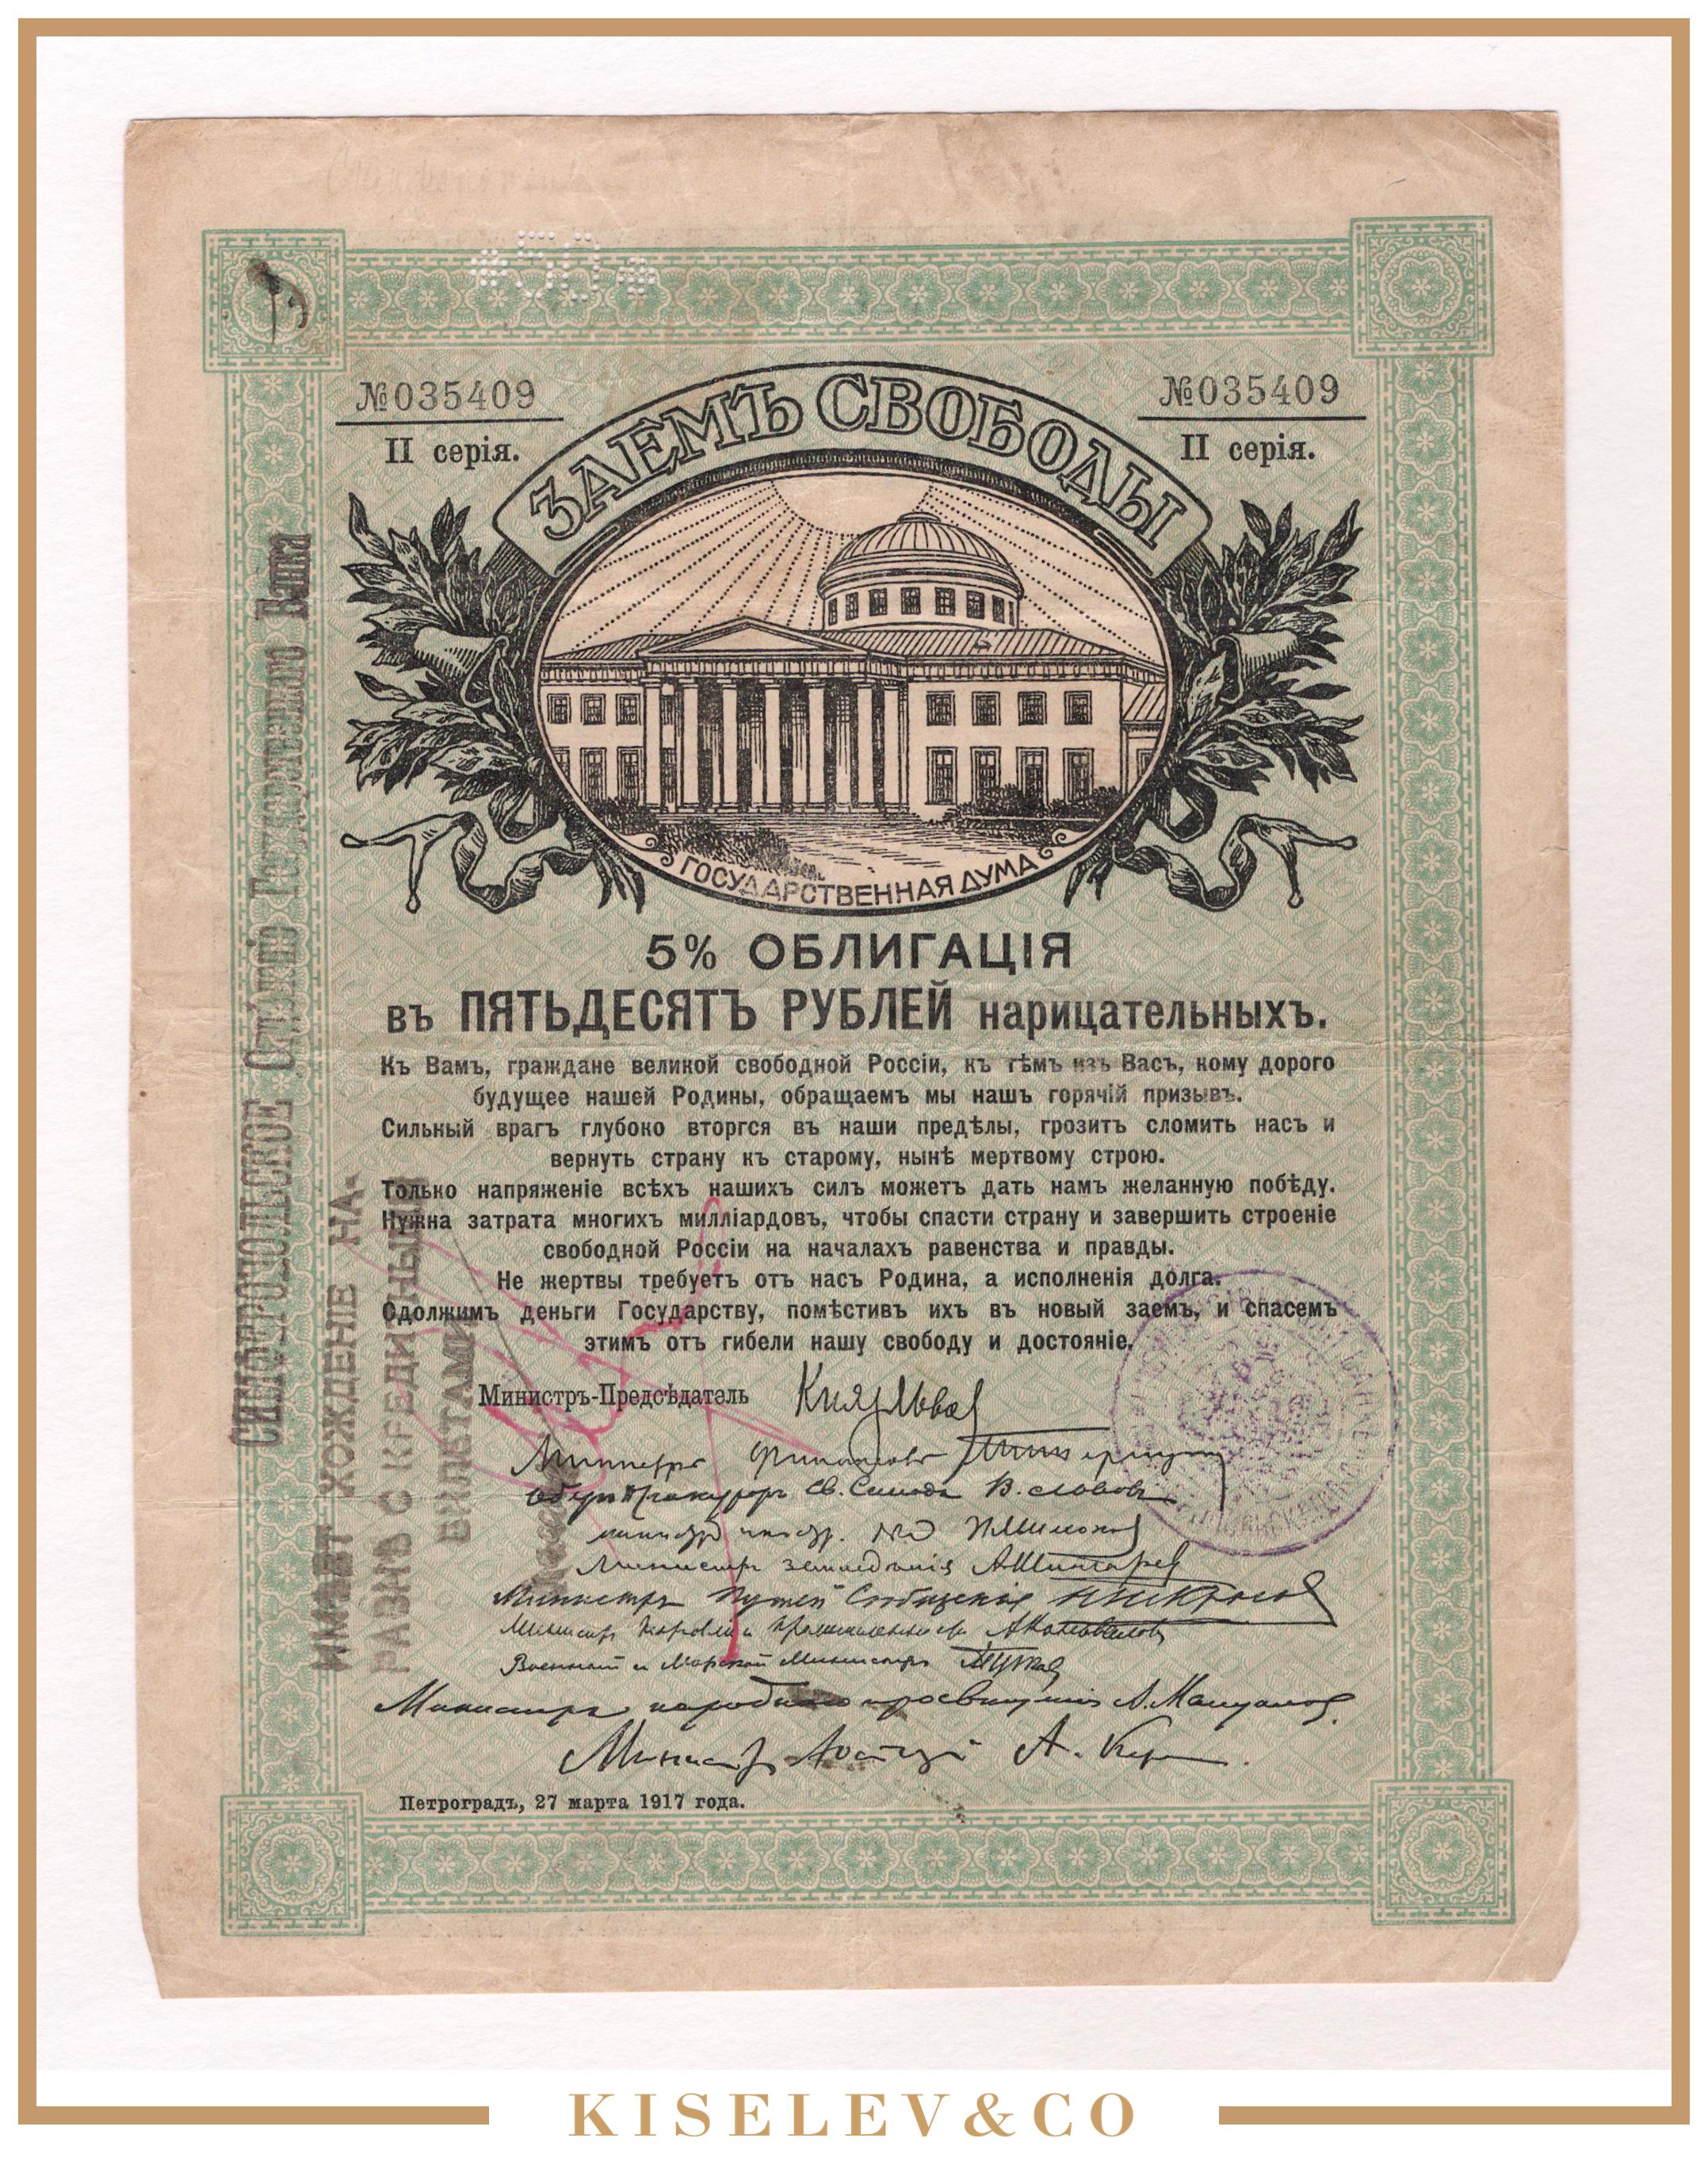 №035409
№035409
II серія.
II серія.
ЗАЕМЪ СВОБОДЫ
ГОСУДАРСТВЕННАЯ ДУМА
5% ОБЛИГАЦІЯ
въ ПЯТЬДЕСЯТЪ РУБЛЕЙ нарицательныхъ.
Къ Вамъ, граждане великой свободной Россіи, къ тѣмъ изъ Васъ, кому дорого
будущее нашей Родины, обращаемъ мы нашъ горячій призывъ.
Сильный врагъ глубоко вторгся въ наши предѣлы, грозитъ сломить насъ и
вернуть страну къ старому, нынѣ мертвому строю.
Только напряженіе всѣхъ нашихъ силъ можетъ дать намъ желанную побѣду.
Нужна затрата многихъ милліардовъ, чтобы спасти страну и завершить строеніе
свободной Россіи на началахъ равенства и правды.
Не жертвы требуетъ отъ насъ Родина, а исполненія долга.
Одолжимъ деньги Государству, помѣстивъ ихъ въ новый заемъ, и спасемъ
этимъ отъ гибели нашу свободу и достояніе.
Министръ-Предсѣдатель Кн Львов
Министръ Финансовъ
Оберъ Прокуроръ Св. Синода В. Львовъ
министр иностр. дѣл П Милюков
Министръ земледѣлія А Шингарев
Министръ Путей Сообщенія Н Некрасов
Министръ Торговли и Промышленности А Коновалов
Военный и Морской Министръ А Гучков
Министръ народнаго просвѣщенія А. Мануйлов.
Министръ Юстиціи А. Кер
Петроградъ, 27 марта 1917 года.
СИМФЕРОПОЛЬСКОЕ Отдѣленіе Государственнаго Банка
ИМѢЕТ ХОЖДЕНІЕ НА-
РАВНѢ С КРЕДИТНЫМИ
БИЛЕТАМИ
50
KISELEV&CO